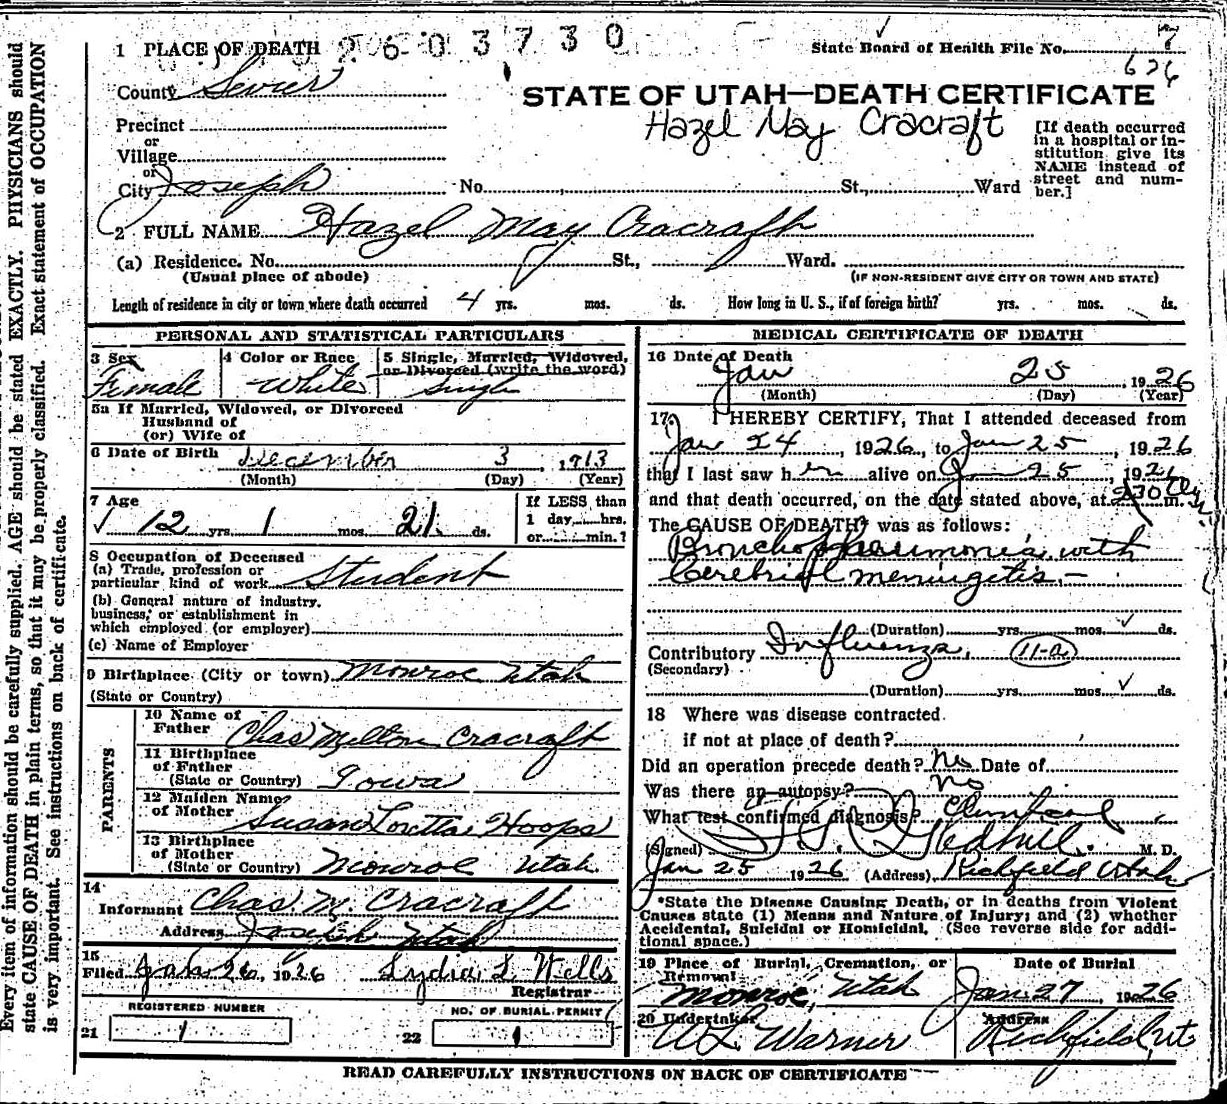 Every item of information should be carefully supplied. AGE should be stated EXACTLY. PHYSICIANS should
state CAUSE OF DEATH in plain terms, so that it may be properly classified. Exact statement of OCCUPATION
is very important. See instructions on back of certificate.
1 PLACE OF DEATH 2603730
State Board of Health File No. 7
626
County Sevier
STATE OF UTAH—DEATH CERTIFICATE
Hazel May Cracraft
Precinct
or
Village
or
City Joseph No. , St., Ward
[If death occurred
in a hospital or in-
stitution give its
NAME instead of
street and num-
ber.]
2 FULL NAME Hazel May Cracraft
(a) Residence. No. St., Ward.
(Usual place of abode) (IF NON-RESIDENT GIVE CITY OR TOWN AND STATE)
Length of residence in city or town where death occurred 4 yrs. mos. ds. How long in U. S., if of foreign birth? yrs. mos. ds.
PERSONAL AND STATISTICAL PARTICULARS
3 Sex
Female
4 Color or Race
White
5 Single, Married, Widowed,
or Divorced (write the word)
Single
5a If Married, Widowed, or Divorced
Husband of
(or) Wife of
6 Date of Birth December 3, 1913
(Month) (Day) (Year)
7 Age
12 yrs. 1 mos. 21 ds.
If LESS than
1 day, hrs.
or min.?
8 Occupation of Deceased
(a) Trade, profession or
particular kind of work Student
(b) General nature of industry,
business, or establishment in
which employed (or employer)
(c) Name of Employer
9 Birthplace (City or town) Monroe Utah
(State or Country)
PARENTS
10 Name of
Father Chas Milton Cracraft
11 Birthplace
of Father
(State or Country) Iowa
12 Maiden Name
of Mother Susan Loretta Hoops
13 Birthplace
of Mother
(State or Country) Monroe Utah
14
Informant Chas M. Cracraft
Address Joseph Utah
15
Filed Jan 26, 1926 Lydia L Wells
Registrar
REGISTERED NUMBER
21 1
NO. OF BURIAL PERMIT
22 1
MEDICAL CERTIFICATE OF DEATH
16 Date of Death
Jan 25, 1926
(Month) (Day) (Year)
17 I HEREBY CERTIFY, That I attended deceased from
Jan 24, 1926, to Jan 25, 1926
that I last saw her alive on Jan 25, 1926
and that death occurred, on the date stated above, at 230 m.
The CAUSE OF DEATH* was as follows:
Broncho pneumonia with
Cerebral meningitis -
(Duration) yrs. mos. ds.
Contributory Influenza, 11-a
(Secondary)
(Duration) yrs. mos. ds.
18 Where was disease contracted
if not at place of death?
Did an operation precede death? No Date of
Was there an autopsy? No
What test confirmed diagnosis? Clinical
(Signed) Gledhill. M. D.
Jan 25 1926 (Address) Richfield Utah
*State the Disease Causing Death, or in deaths from Violent
Causes state (1) Means and Nature of Injury; and (2) whether
Accidental, Suicidal or Homicidal. (See reverse side for addi-
tional space.)
19 Place of Burial, Cremation, or
Removal
Monroe, Utah
Date of Burial
Jan 27, 1926
20 Undertaker
Warner
Address
Richfield, Ut
READ CAREFULLY INSTRUCTIONS ON BACK OF CERTIFICATE